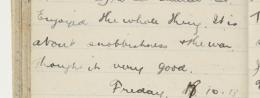 Enjoyed the whole thing. It is
about snobbishness & the war
though it very good.
Friday 10.